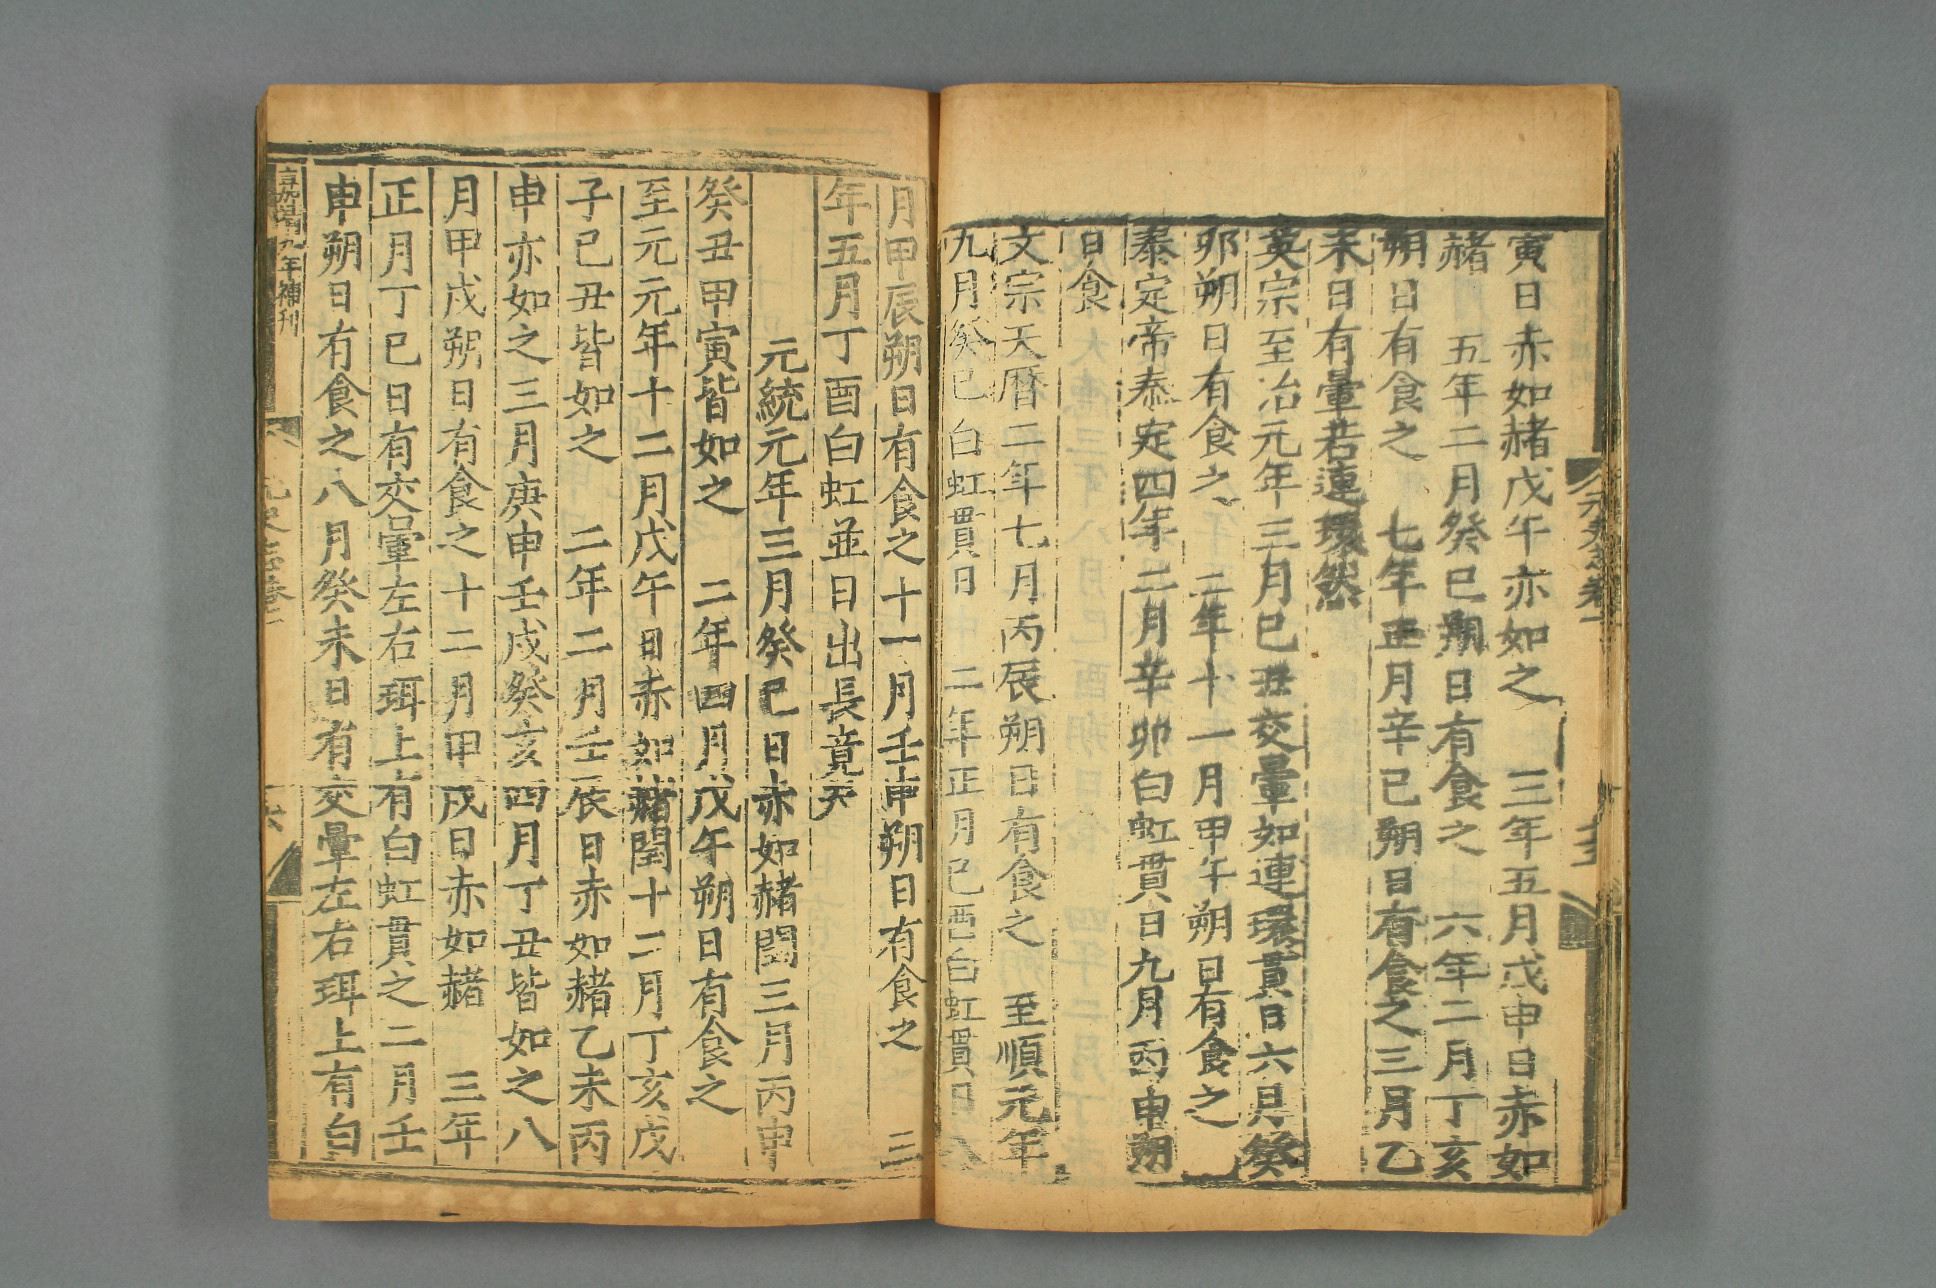 元史志卷一
寅日赤如赭戊午亦如之　三年五月戊申日赤如
赭　五年二月癸巳朔日有食之　六年二月丁亥
朔日有食之　七年正月辛巳朔日有食之三月乙
未日有暈若連環然
英宗至治元年三月己丑交暈如連環貫日六月癸
卯朔日有食之　二年十一月甲午朔日有食之
泰定帝泰定四年二月辛卯白虹貫日九月丙申朔
日食
文宗天曆二年七月丙辰朔日有食之　至順元年
九月癸巳白虹貫日　二年正月己酉白虹貫日八
月甲辰朔日有食之十一月壬申朔日有食之　三
年五月丁酉白虹並日出長竟天
元統元年三月癸巳日赤如赭閏三月丙申
癸丑甲寅皆如之　二年四月戊午朔日有食之
至元元年十二月戊午日赤如赭閏十二月丁亥戊
子己丑皆如之　二年二月壬辰日赤如赭乙未丙
申亦如之三月庚申壬戌癸亥四月丁丑皆如之八
月甲戌朔日有食之十二月甲戌日赤如赭　三年
正月丁巳日有交暈左右珥上有白虹貫之二月壬
申朔日有食之八月癸未日有交暈左右珥上有白
嘉靖九年補刊
元史志卷一
六